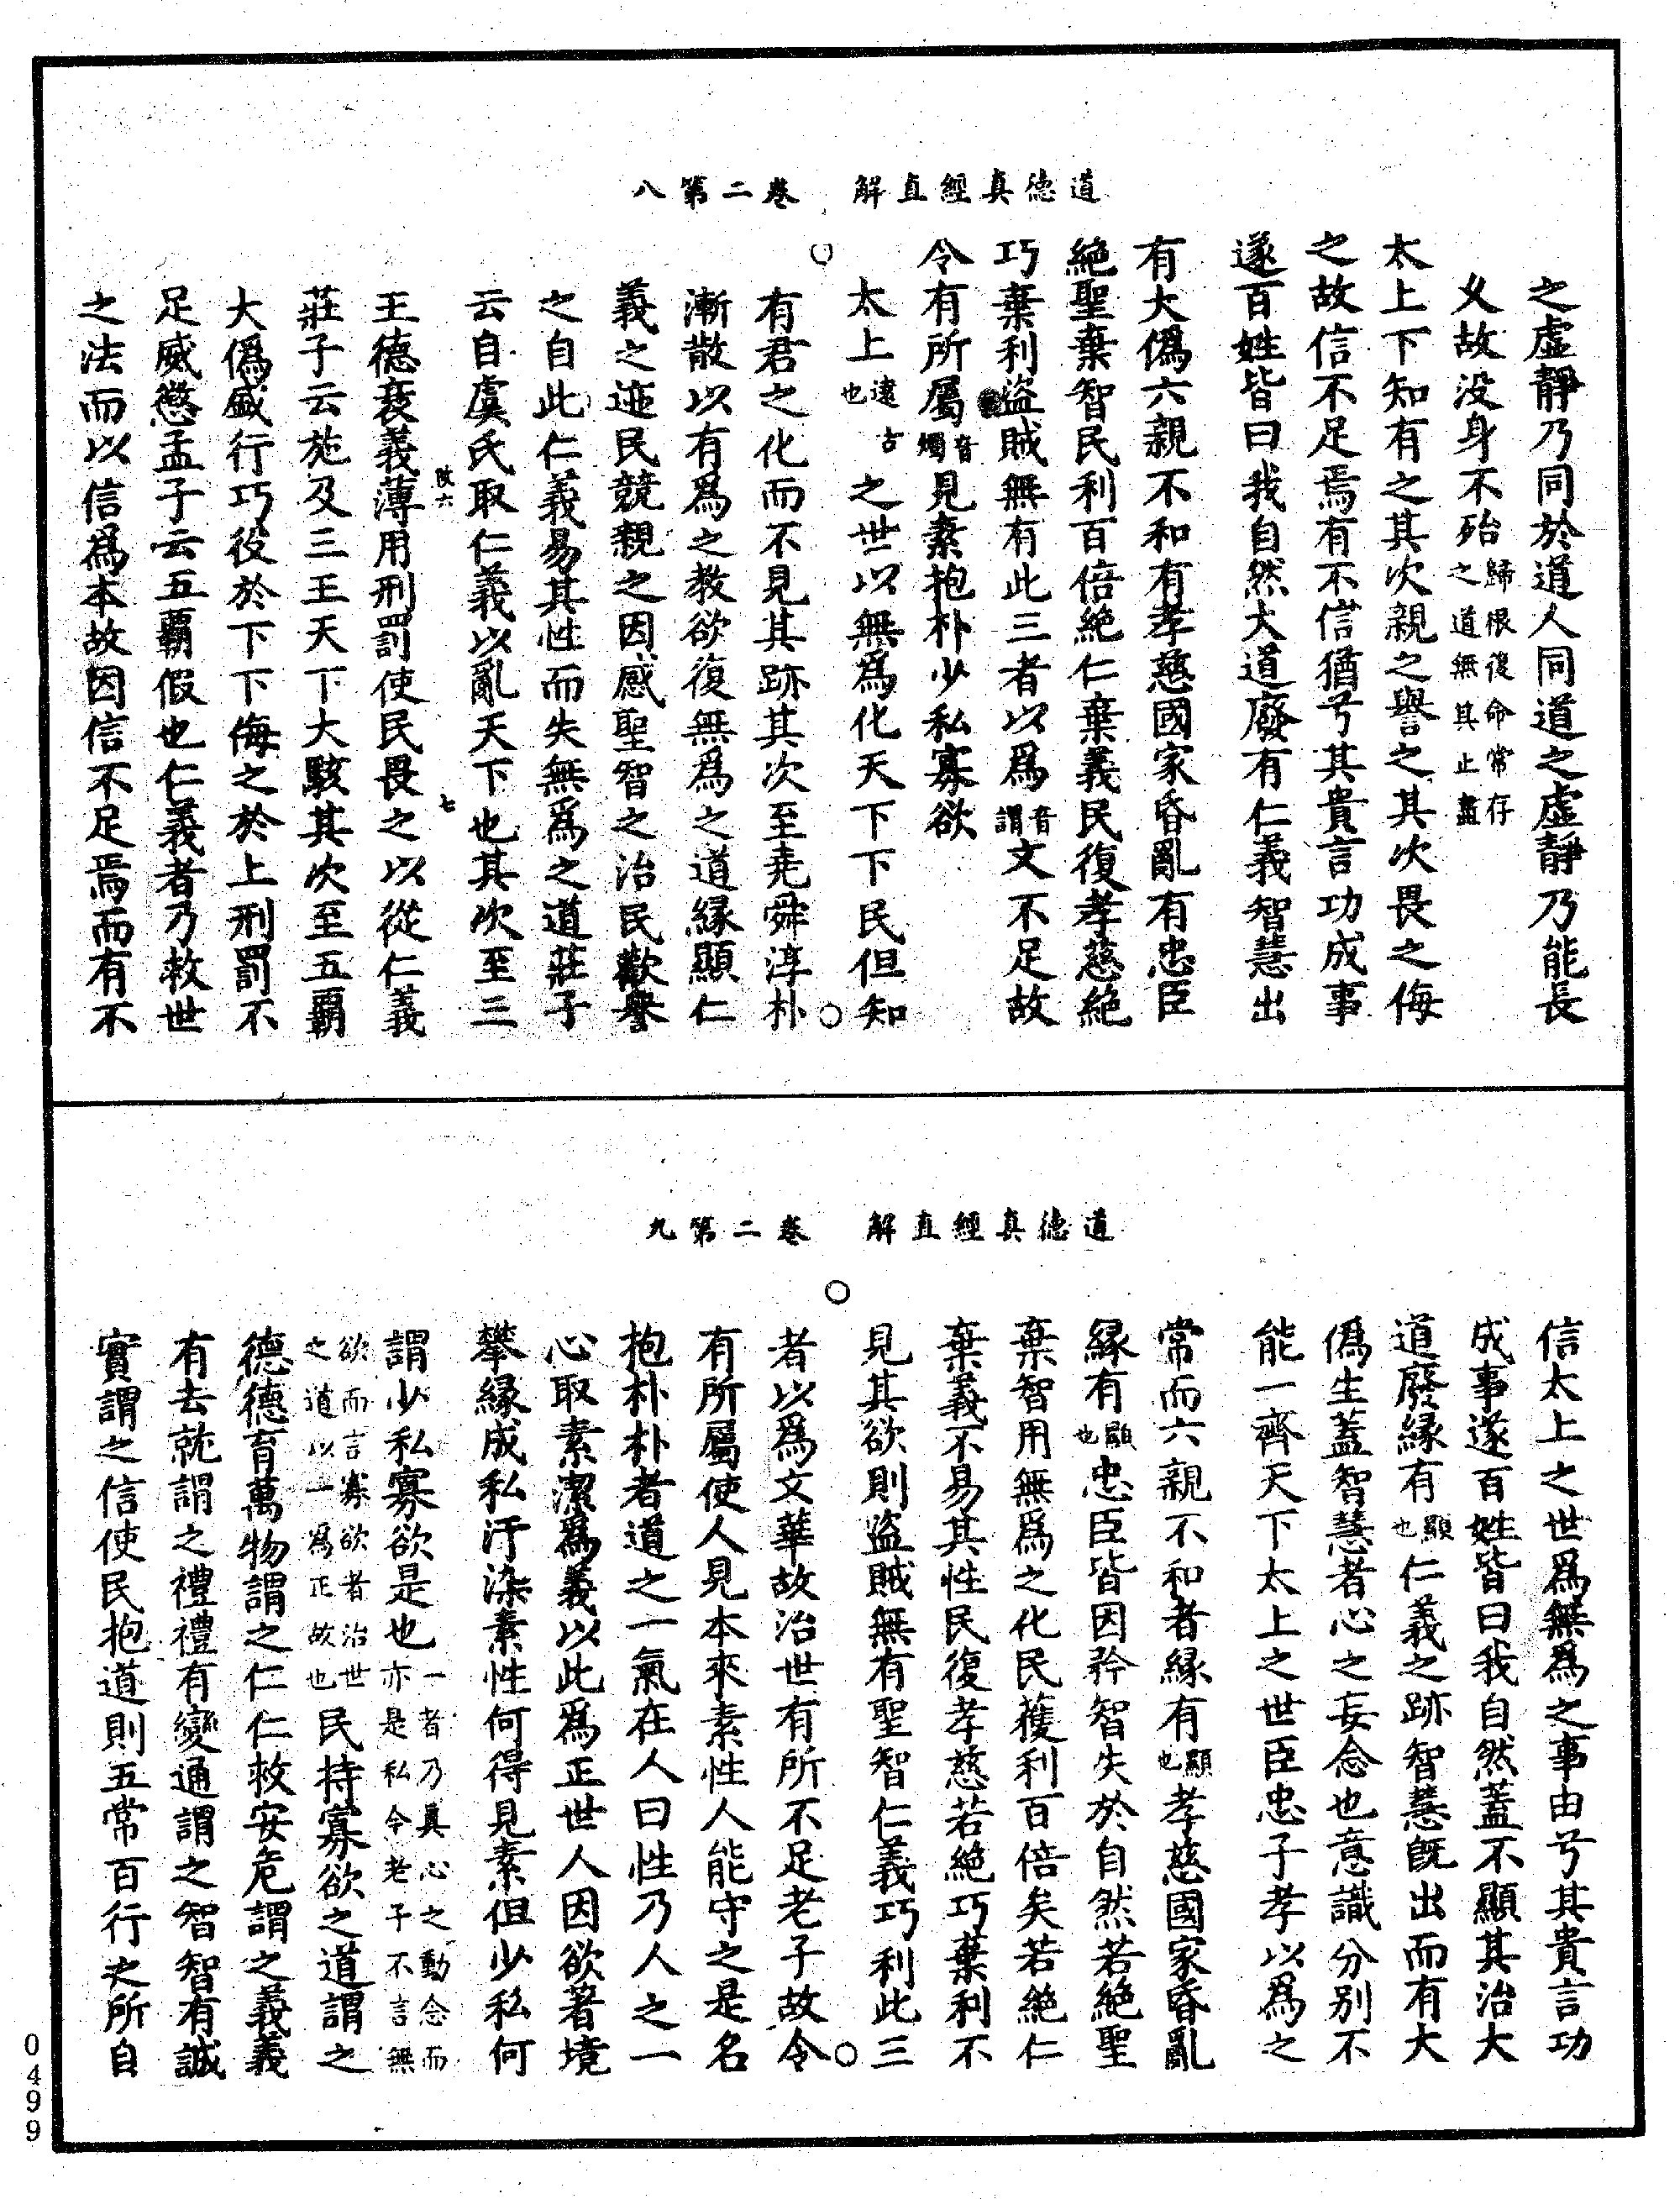 道德真經直解　卷二第八
之虛靜乃同於道人同道之虛靜乃能長
乂故没身不殆歸根復命常存之道無其止盡
太上下知有之其次親之譽之其次畏之侮
之故信不足焉有不信猶兮其貴言功成事
遂百姓皆曰我自然大道廢有仁義智慧出
有大僞六親不和有孝慈國家昏亂有忠臣
絶聖棄智民利百倍絶仁棄義民復孝慈絶
巧棄利盜賊無有此三者以爲音謂文不足故
令有所屬音燭見素抱朴少私寡欲
太上遠古也之世以無爲化天下下民但知
有君之化而不見其跡其次至堯舜淳朴
漸散以有爲之教欲復無爲之道緣顯仁
義之迹民競親之因感聖智之治民歡譽
之自此仁義易其性而失無爲之道莊子
云自虞氏取仁義以亂天下也其次至三
改六　七
王德衰義薄用刑罰使民畏之以從仁義
莊子云施及三王天下大駭其次至五覇
大僞盛行巧役於下下侮之於上刑罰不
足威懲孟子云五覇假也仁義者乃救世
之法而以信爲本故因信不足焉而有不
道德真經直解　卷二第九
信太上之世爲無爲之事由兮其貴言功
成事遂百姓皆曰我自然蓋不顯其治大
道廢緣有顯也仁義之跡智慧旣出而有大
僞生蓋智慧者心之妄念也意識分别不
能一齊天下太上之世臣忠子孝以爲之
常而六親不和者緣有顯也孝慈國家昏亂
緣有顯也忠臣皆因矜智失於自然若絶聖
棄智用無爲之化民獲利百倍矣若絶仁
棄義不易其性民復孝慈若絶巧棄利不
見其欲則盜賊無有聖智仁義巧利此三
者以爲文華故治世有所不足老子故令
有所屬使人見本來素性人能守之是名
抱朴朴者道之一氣在人曰性乃人之一
心取素潔爲義以此爲正世人因欲著境
攀緣成私汙染素性何得見素但少私何
謂少私寡欲是也一者乃真心之動念而亦是私令老子不言無
欲而言寡欲者治世之道以一爲正故也民持寡欲之道謂之
德德育萬物謂之仁仁救安危謂之義義
有去就謂之禮禮有變通謂之智智有誠
實謂之信使民抱道則五常百行之所自
0499